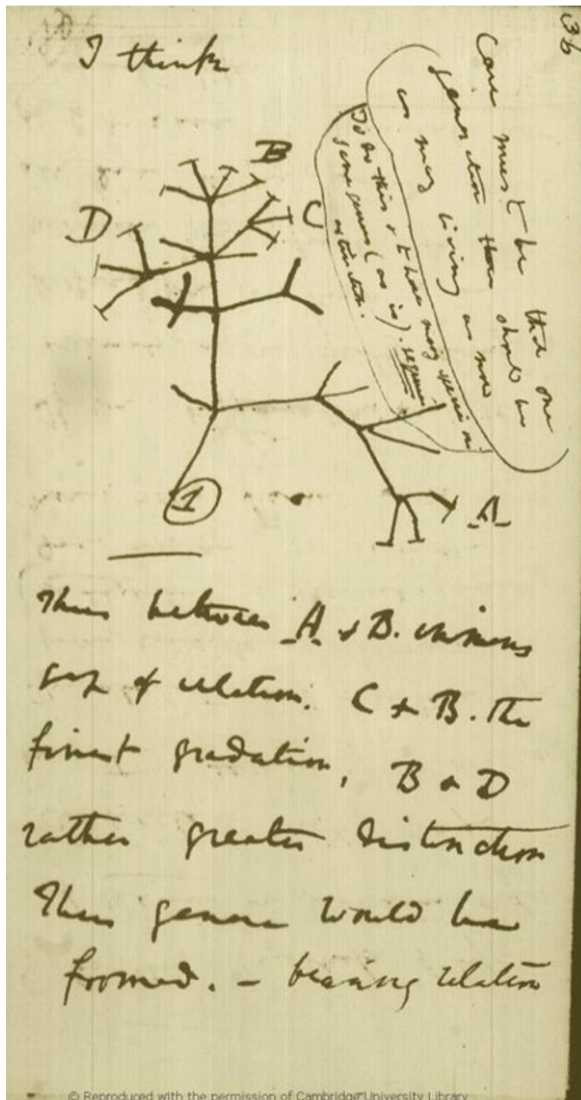 36
I think
Case must be that one
generation then should be
as many living as now
To do this & to have many species in
same genus (as is). requires
extinction.
B
D
C
1
A
Thus between A & B. immens
gap of relation. C & B. the
finest gradation, B & D
rather greater distinction
Thus genera would be
formed. — bearing relation
© Reproduced with the permission of Cambridge University Library